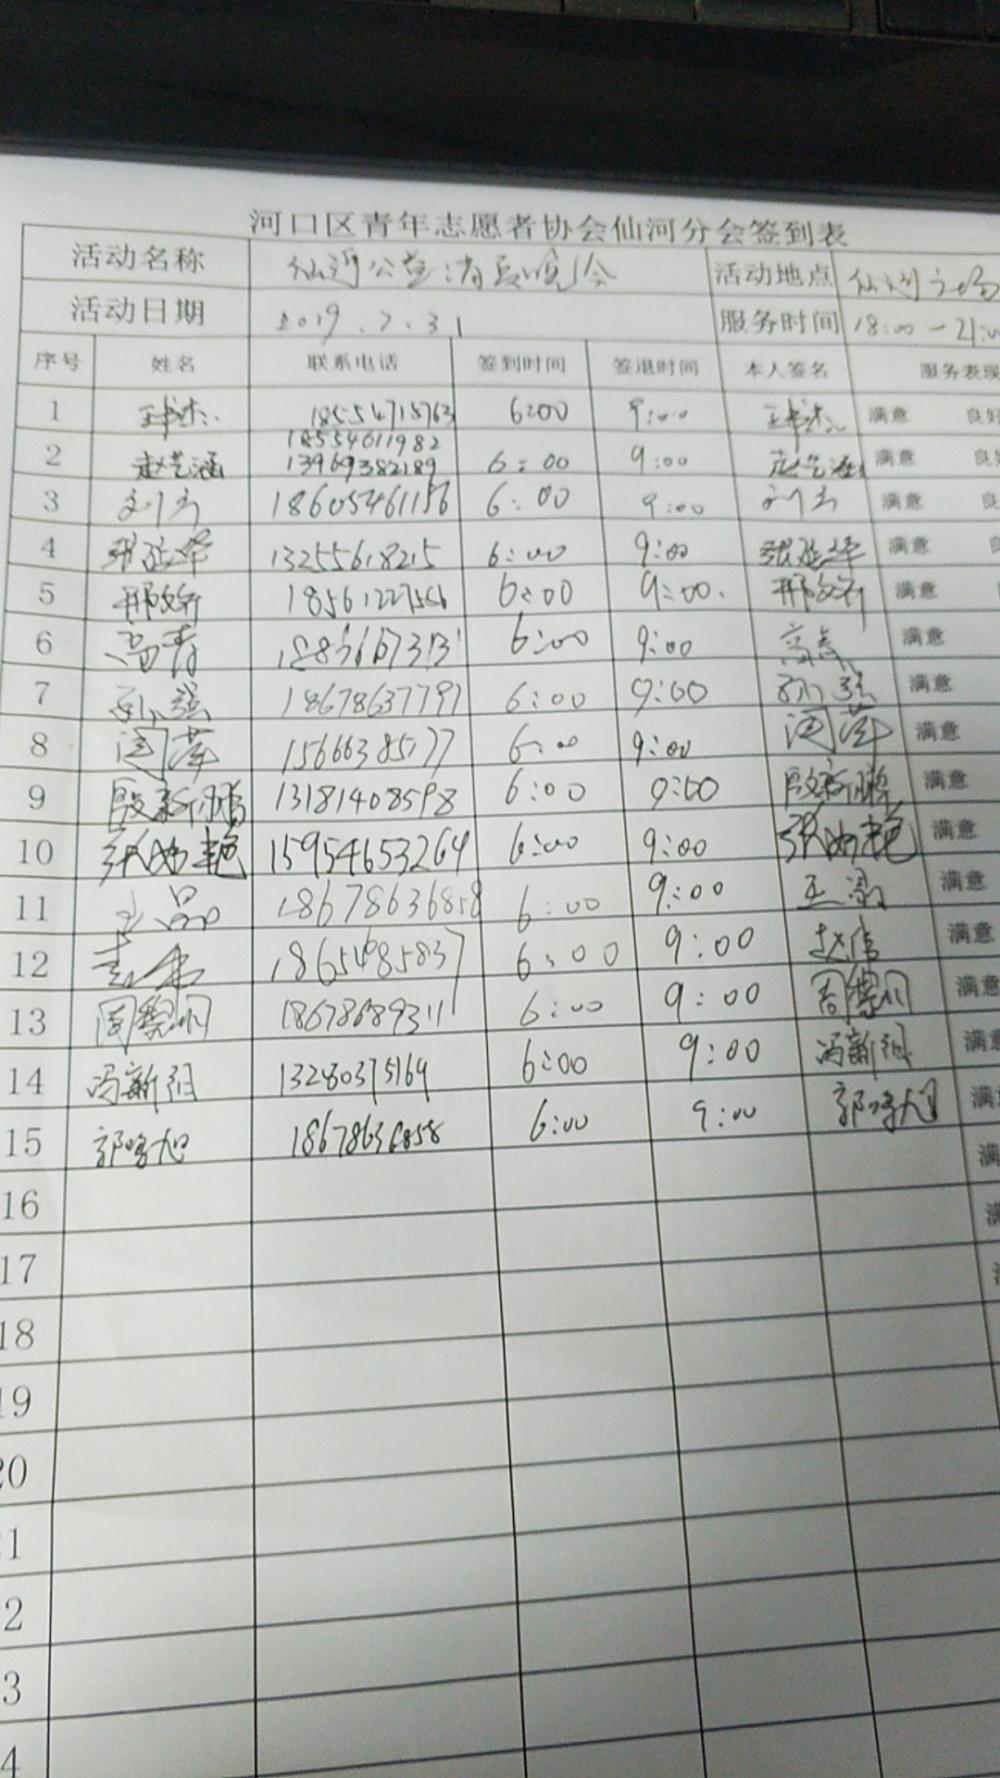 河口区青年志愿者协会仙河分会签到表
活动名称 仙河公益消夏晚会 活动地点 仙河广场
活动日期 2019.7.31 服务时间 18:00-21:00
序号 姓名 联系电话 签到时间 签退时间 本人签名 服务表现
1 18554715763 6:00 9:00 满意 良好
18554611982
2 赵艺涵 13969382189 6:00 9:00 赵艺涵 满意 良
3 18605461156 6:00 9:00 满意 良
4 张延华 13255618215 6:00 9:00 张延华 满意 良
5 邢文轩 6:00 9:00. 邢文轩 满意
6 高青 6:00 9:00 高青 满意
7 孙强 18678637791 6:00 9:00 孙强 满意
8 闫萍 6:00 9:00 闫萍 满意
9 殷新鹏 13181408598 6:00 9:00 殷新鹏 满意
10 张如艳 15954653264 6:00 9:00 张如艳 满意
11 18678636858 6:00 9:00 满意
12 18654985837 6:00 9:00 赵伟 满意
13 周黎明 18678689311 6:00 9:00 周黎明 满意
14 冯新阳 13280375169 6:00 9:00 冯新阳 满意
15 郭晓旭 18678636858 6:00 9:00 郭晓旭 满
16 满
17 满
18
19
20
1
2
3
4